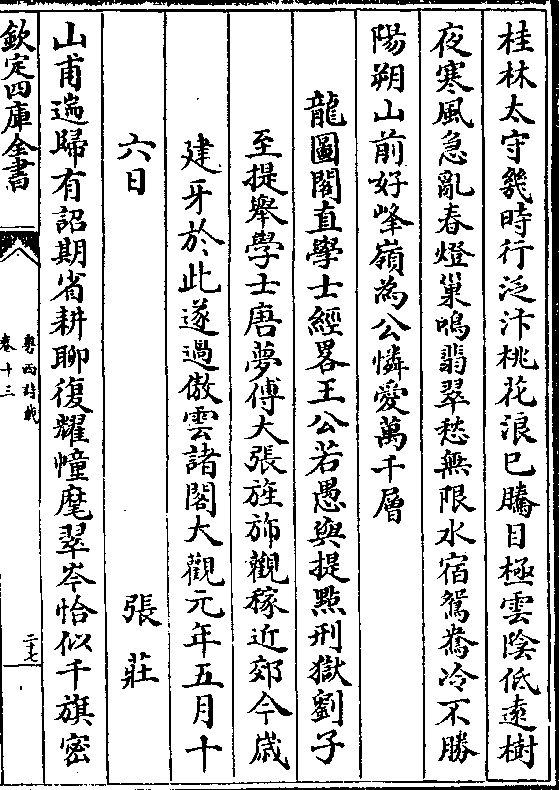 桂林太守幾時行泛汴桃花浪已騰目極雲陰低遠樹
夜寒風急亂春燈巢鳴翡翠愁無限水宿鴛鴦冷不勝
陽朔山前好峰嶺為公憐愛萬千層
龍圖閣直學士經畧王公若愚與提點刑獄劉子
至提舉學士唐夢傅大張旌斾觀稼近郊今歳
建牙於此遂過傲雲諸閣大觀元年五月十
六日
張莊
山甫遄歸有詔期省耕聊復耀幢麾翠岑恰似千旗密
欽定四庫全書
粤西詩載
卷十三
二十七